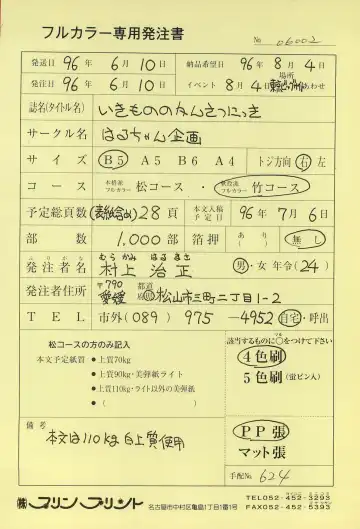 フルカラー専用発注書
No 06002
発送日 96年 6月 10日 納品希望日 96年 8月 4日
発注日 96年 6月 10日 イベント 8月 4日 場所 あわせ
誌名(タイトル名) いきもののかんさつにっき
サークル名 はるちゃん企画
サイズ B5 A5 B6 A4 トジ方向 右 左
コース 本格派フルカラー 松コース ・ フルカラー 竹コース
予定総頁数(表紙含め) 28頁 本文入稿予定日 96年 7月 6日
部数 1,000部 箔押 あり ・ なし 無し
発注者名 むらかみ はるまさ 村上 治正 男・女 年令(24)
発注者住所 〒790 愛媛 都道府県 松山市三町二丁目1-2
TEL 市外(089) 975-4952 自宅・呼出
松コースの方のみ記入
本文予定紙質 ●上質70kg
●上質90kg・美弾紙ライト
●上質110kg・ライト以外の美弾紙
●( )
該当するものに○をつけて下さい
4色刷
5色刷(蛍ピン入)
備考
本文は110kg白上質使用
PP張
マット張
手配No. 624
㈱プリンプリント 名古屋市中村区亀島1丁目1番1号
TEL052-452-3293
FAX052-452-5393